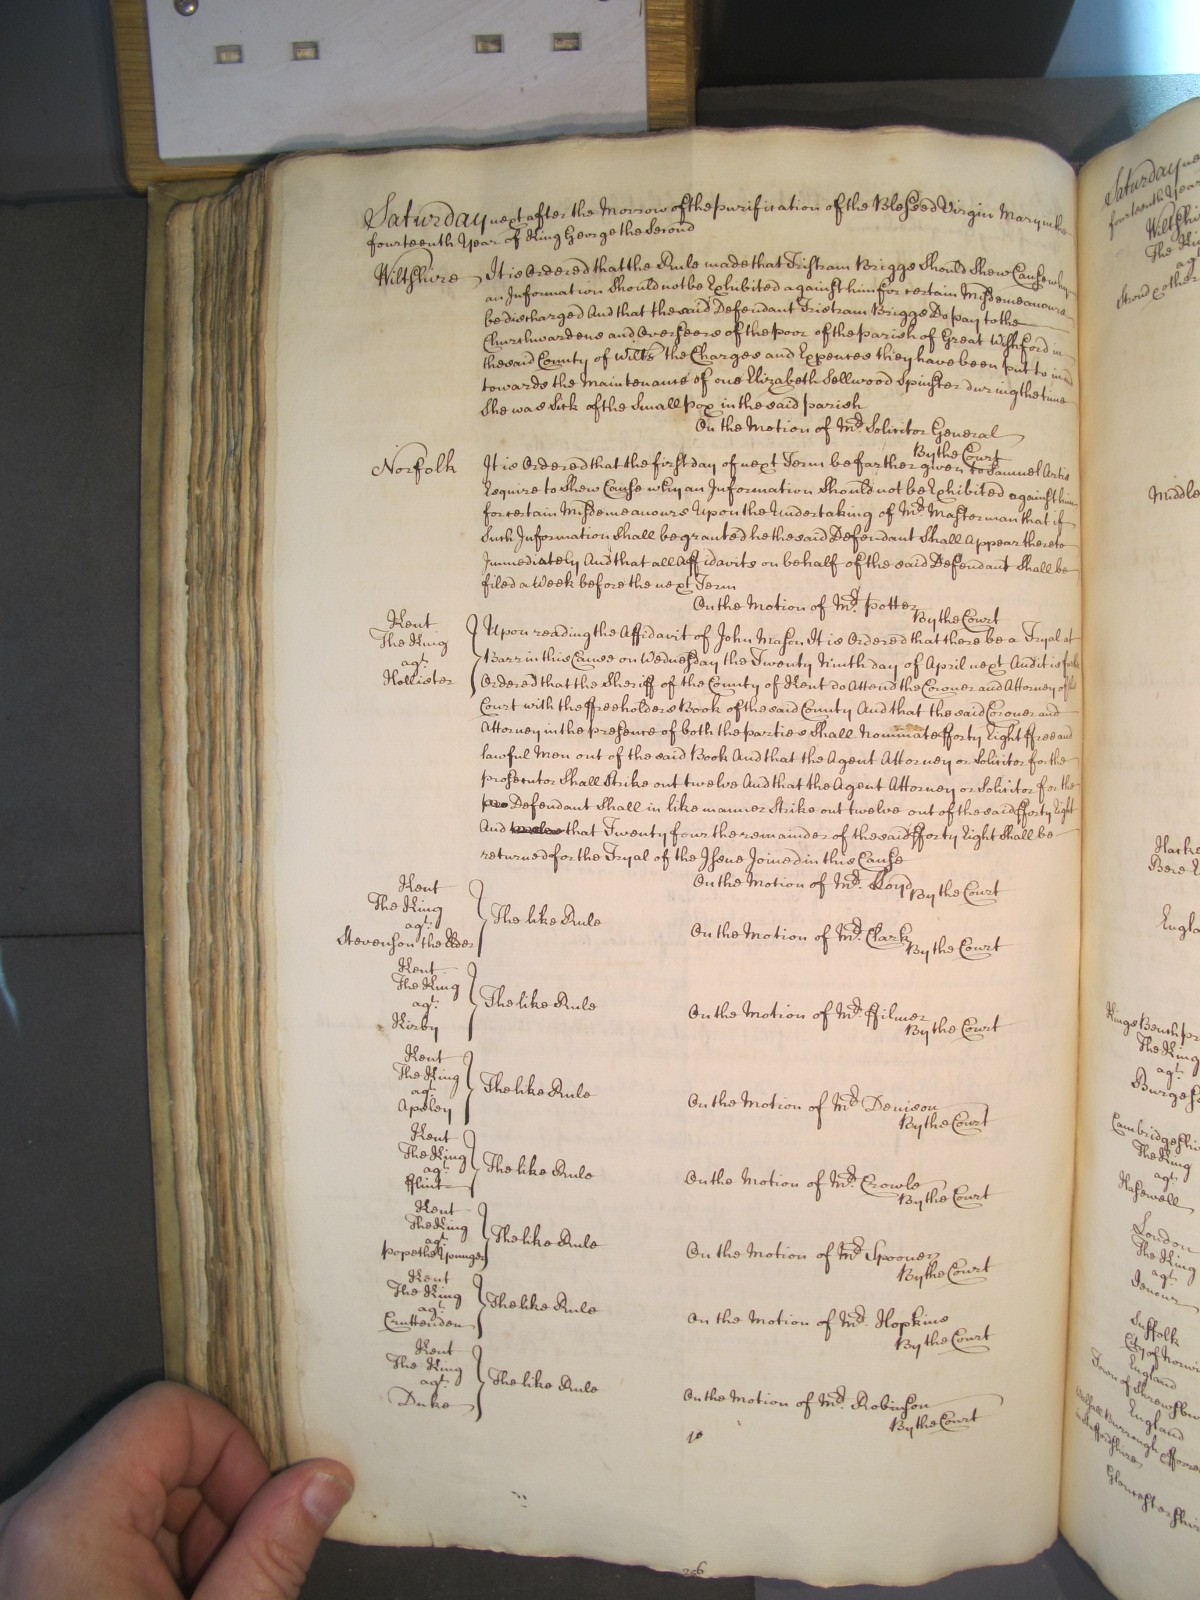 Saturday next after the Morrow of the purification of the Blessed Virgin Mary in the
fourteenth Year of King George the Second
Wiltshire
It is Ordered that the Rule made that Tristram Briggs Should Shew Cause why
an Information Should not be Exhibited against him for certain Misdemeanours
be discharged And that the said Defendant Tristram Briggs Do pay to the
Churchwardens and Overseers of the poor of the parish of Great Wishford in
the said County of Wilts the Charges and Expences they have been put to in and
towards the Maintenance of one Elizabeth Sellwood Spinster during the time
She was Sick of the Small pox in the said parish
On the Motion of Mr. Solicitor General
By the Court
Norfolk
It is Ordered that the first day of next Term be farther given to Samuel Artis
Esquire to Shew Cause why an Information Should not be Exhibited against him
for certain Misdemeanours Upon the Undertaking of Mr. Masterman that if
Such Information Shall be granted he the said Defendant Shall Appear thereto
Immediately And that all Affidavits on behalf of the said Defendant Shall be
filed a Week before the next Term
On the Motion of Mr. Potter
By the Court
Kent
The King
agt.
Hollister
Upon reading the Affidavit of John Mason It is Ordered that there be a Tryal at
Barr in this Cause on Wednesday the Twenty Ninth day of April next And it is
Ordered that the Sheriff of the County of Kent do Attend the Coroner and Attorney of this
Court with the ffreeholders Book of the said County And that the said Coroner and
Attorney in the presence of both the parties Shall Nominate fforty Eight ffree and
lawful Men out of the said Book And that the Agent Attorney or Solicitor for the
prosecutor Shall Strike out twelve And that the Agent Attorney or Solicitor for the
Defendant Shall in like manner Strike out twelve out of the said fforty Eight
And that Twenty four the remainder of the said fforty Eight Shall be
returned for the Tryal of the Issue Joined in this Cause
On the Motion of Mr. Lloyd
By the Court
Kent
The King
agt.
Stevenson the Elder
The like Rule
On the Motion of Mr. Clark
By the Court
Kent
The King
agt.
Kirby
The like Rule
On the Motion of Mr. ffilmer
By the Court
Kent
The King
agt.
Apsley
The like Rule
On the Motion of Mr. Denison
By the Court
Kent
The King
agt.
fflint
The like Rule
On the Motion of Mr. Crowle
By the Court
Kent
The King
agt.
Pope the Younger
The like Rule
On the Motion of Mr. Spooner
By the Court
Kent
The King
agt.
Cruttenden
The like Rule
On the Motion of Mr. Hopkins
By the Court
Kent
The King
agt.
Duke
The like Rule
On the Motion of Mr. Robinson
By the Court
Saturday
fourteenth Year
The King
agt.
Kings Bench
The King
agt.
The King
agt.
London
The King
agt.
Suffolk
England
England